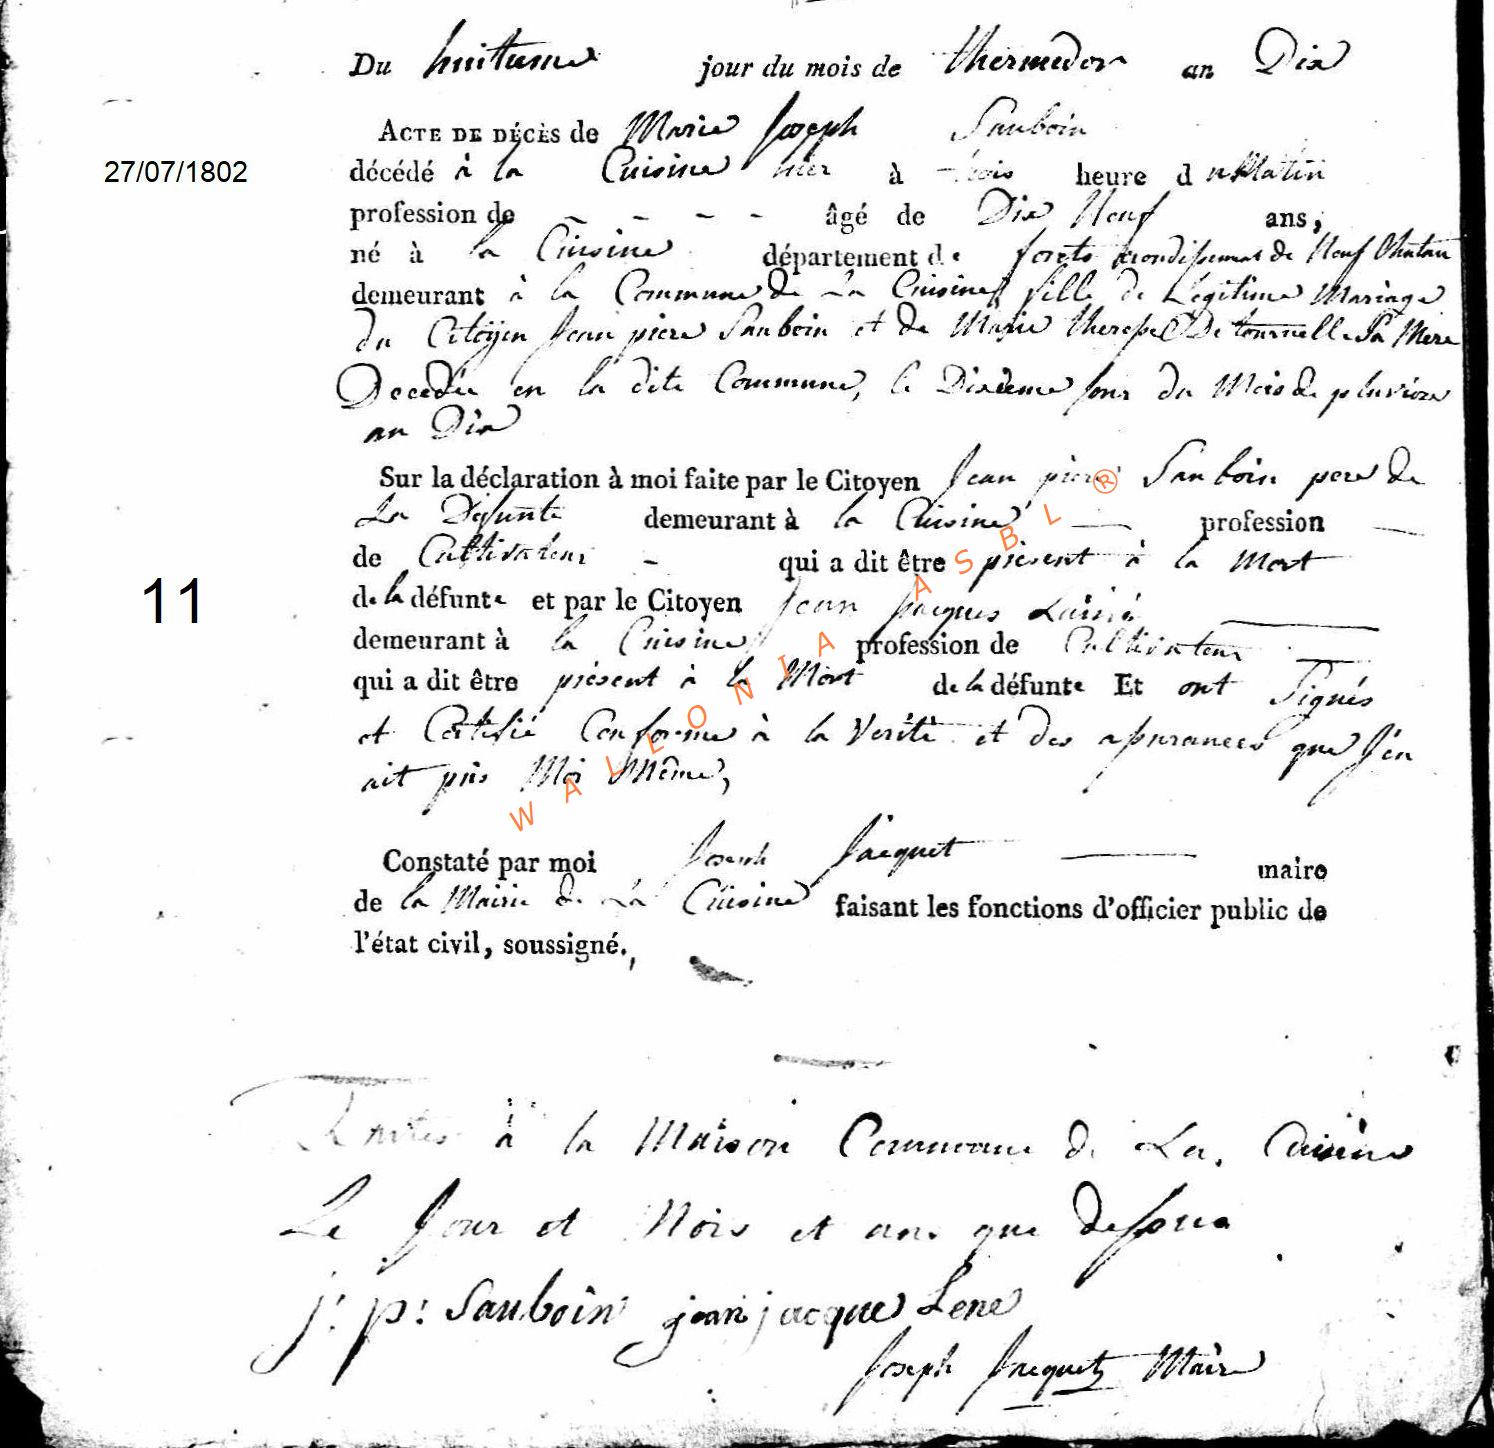 Du huitieme jour du mois de thermedor an Dix
ACTE DE DÉCÈS de Marie Joseph Sauboin
27/07/1802
décédé à la Cuisine hier à trois heure du Matin
profession de - - - - âgé de Dix Neuf ans,
né à la Cuisine département de forets arondissement de Neuf Chatau
demeurant à la Commune de La Cuisine fille de Légitime Mariage
du Citöyen Jean piere Sauboin et de Marie therese De tournelle Sa Mere
Decedée en la dite Commune, le Dixieme Jour du Mois de pluviose
an Dix
Sur la déclaration à moi faite par le Citoyen Jean piere Sauboin pere de
La Défunte demeurant à la Cuisine profession
de Cultivateur - qui a dit être présent à la Mort
11
de la défunte et par le Citoyen Jean Jacques
demeurant à la Cuisine profession de Cultivateur
qui a dit être présent à la Mort de la défunte Et ont Signés
et Certifié Conforme à la Verité et des assurances que J'en
ait pris Moi Même,
WALLONIA ASBL ®
Constaté par moi Joseph Jacquet maire
de la Mairie de La Cuisine faisant les fonctions d'officier public de
l'état civil, soussigné.,
à la Maison Commune de La Cuisine
Le Jour et Mois et an que dessus
j: p: Sauboin jean jacque Lene
Joseph Jacquet Maire